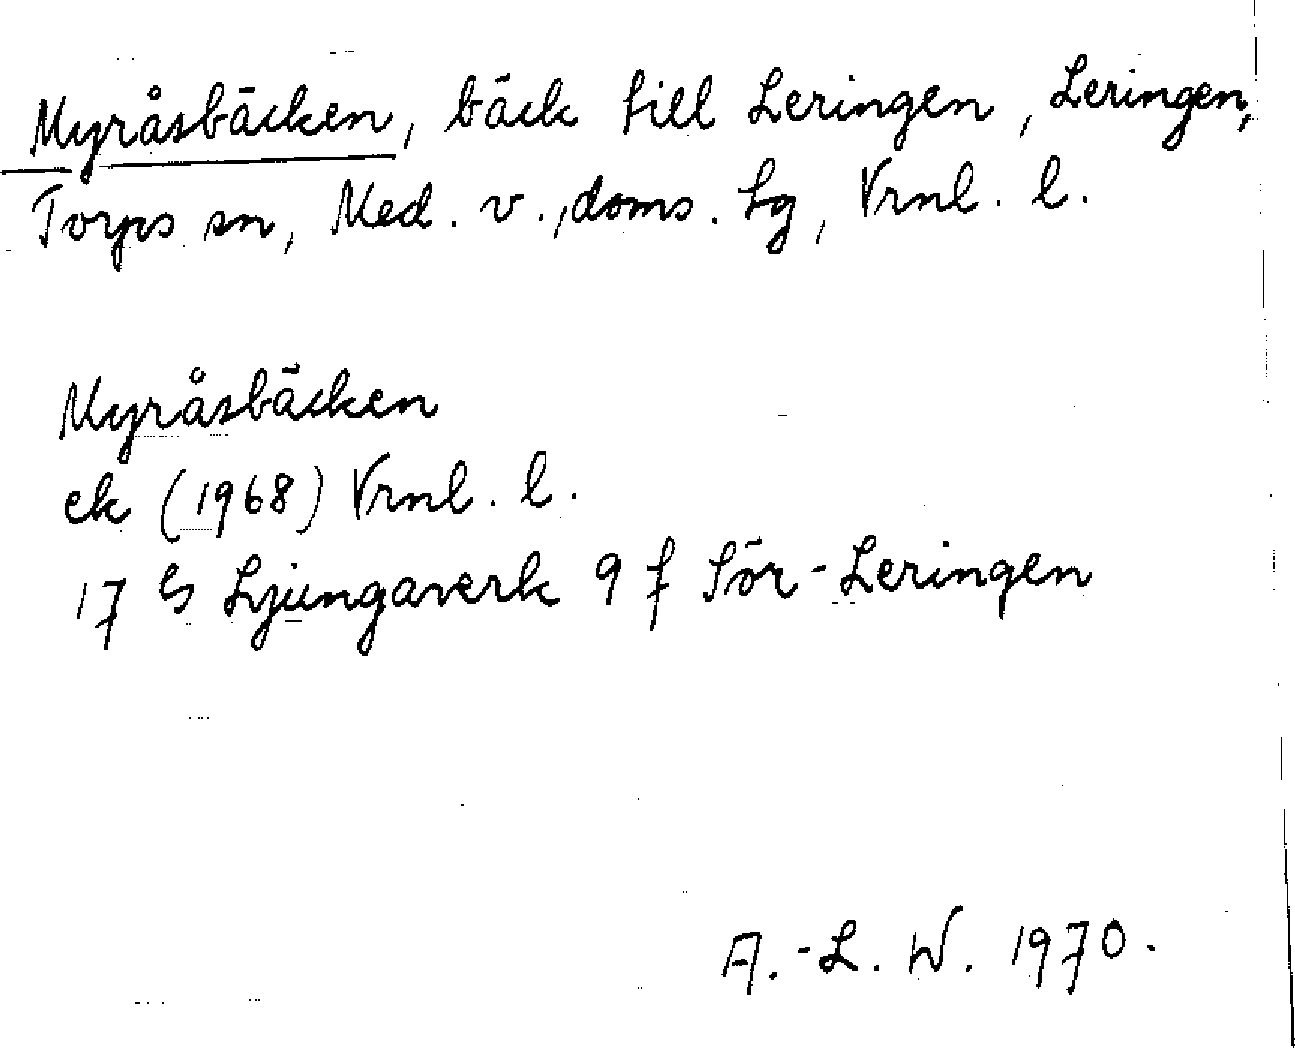 Myråsbäcken, bäck till Leringen, Leringen,
Torps sn, Med. v., doms. tg, Vrnl. l.
Myråsbäcken
ek (1968) Vrnl. l.
17 G Ljungaverk 9 f Sör-Leringen
A.-L. W. 1970.